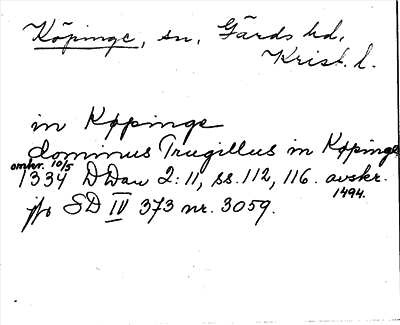 Köpinge, sn, Gärds hd,
Krist. l.
in Køpinge
dominus Trugillus in Køpinge
omkr. 10/5
1334 D Dan 2:11, ss. 112, 116. avskr.
1494.
jfr SD IV 373 nr. 3059.